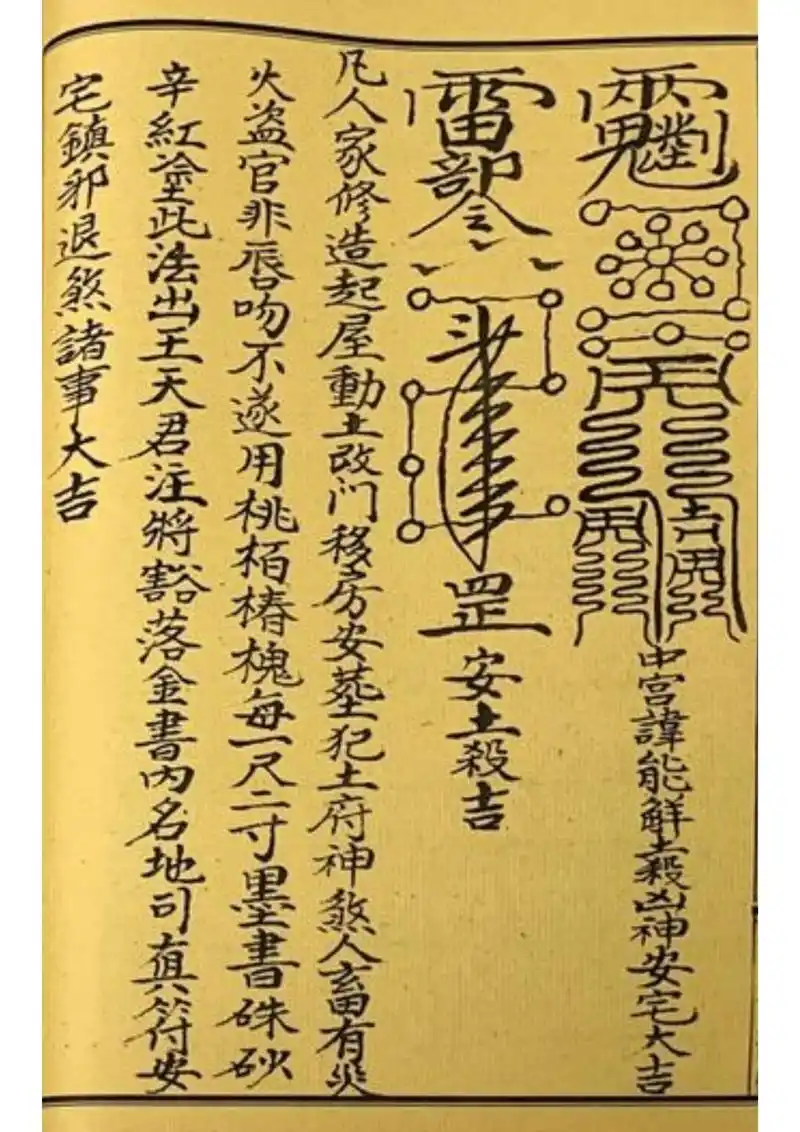 中宮諱能解土殺凶神安宅大吉
雷部令
斗
罡安土殺吉
凡人家修造起屋動土改门移房安葬犯土府神煞人畜有災
火盗官非唇吻不遂用桃栢椿槐每一尺二寸墨書硃砂
辛紅塗此法出王天君注將豁落金書內名地司真符安
宅鎮邪退煞諸事大吉